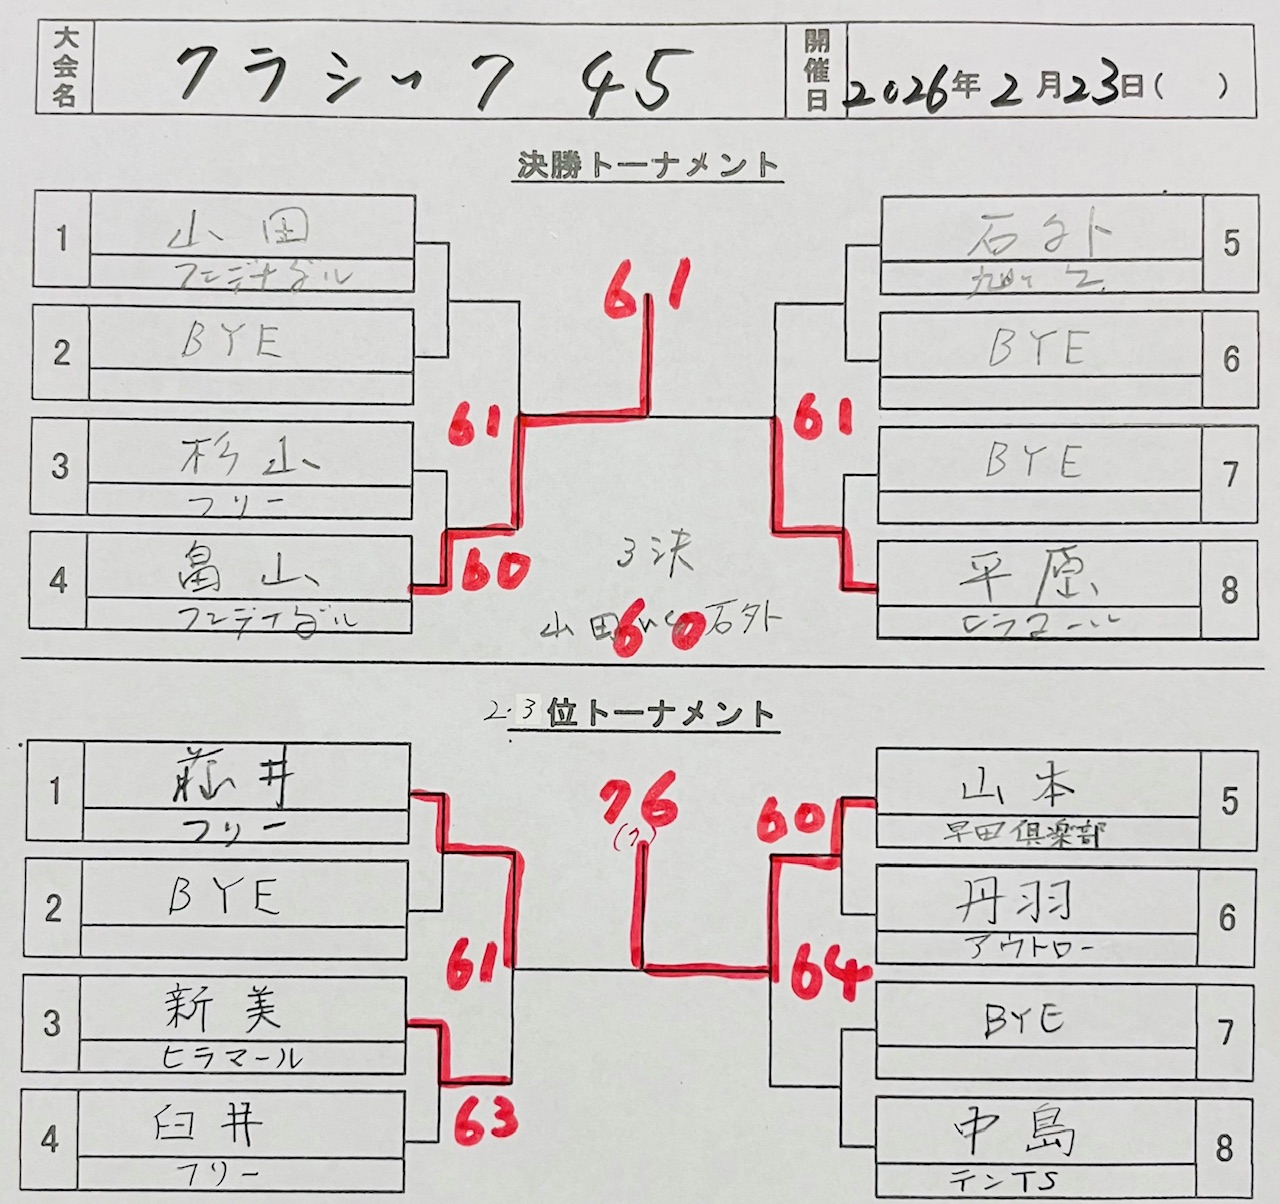 大会名 クラシック 45 開催日 2026年 2月23日( )
決勝トーナメント
1 山田
フェンデナゲル
2 BYE
3 杉山
フリー
4 畠山
フェンデナゲル
石外 5
BYE 6
BYE 7
平原 8
ヒラマール
61
61
61
60
3決
山田 vs 石外
60
2・3位トーナメント
1 藤井
フリー
2 BYE
3 新美
ヒラマール
4 臼井
フリー
山本 5
早田倶楽部
丹羽 6
アウトロー
BYE 7
中島 8
テンTS
76
(7)
60
61
64
63